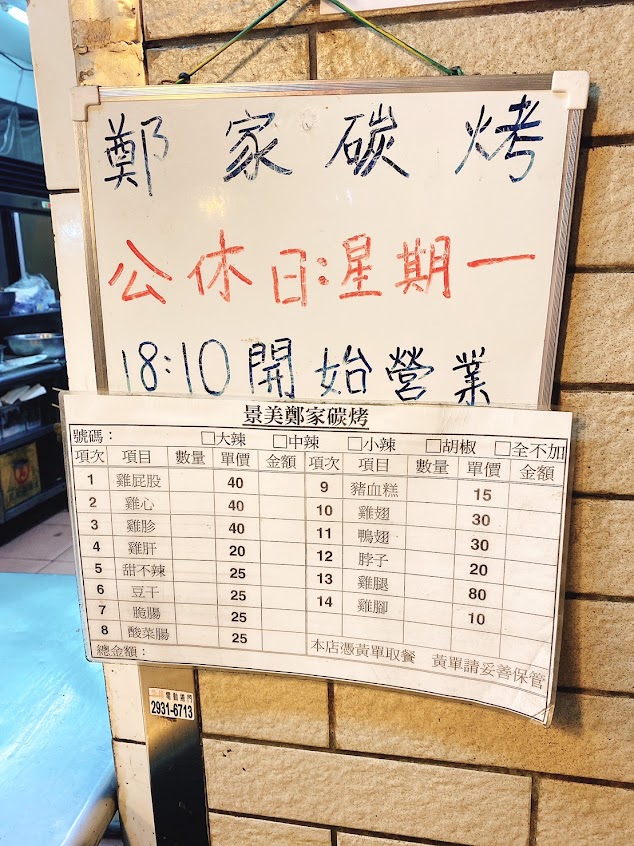 鄭家碳烤
公休日:星期一
18:10開始營業
景美鄭家碳烤
號碼： □大辣 □中辣 □小辣 □胡椒 □全不加
項次 項目 數量 單價 金額 項次 項目 數量 單價 金額
1 雞屁股 40 9 豬血糕 15
2 雞心 40 10 雞翅 30
3 雞胗 40 11 鴨翅 30
4 雞肝 20 12 脖子 20
5 甜不辣 25 13 雞腿 80
6 豆干 25 14 雞腳 10
7 脆腸 25
8 酸菜腸 25
總金額： 本店憑黃單取餐 黃單請妥善保管
電動捲門
2931-6713